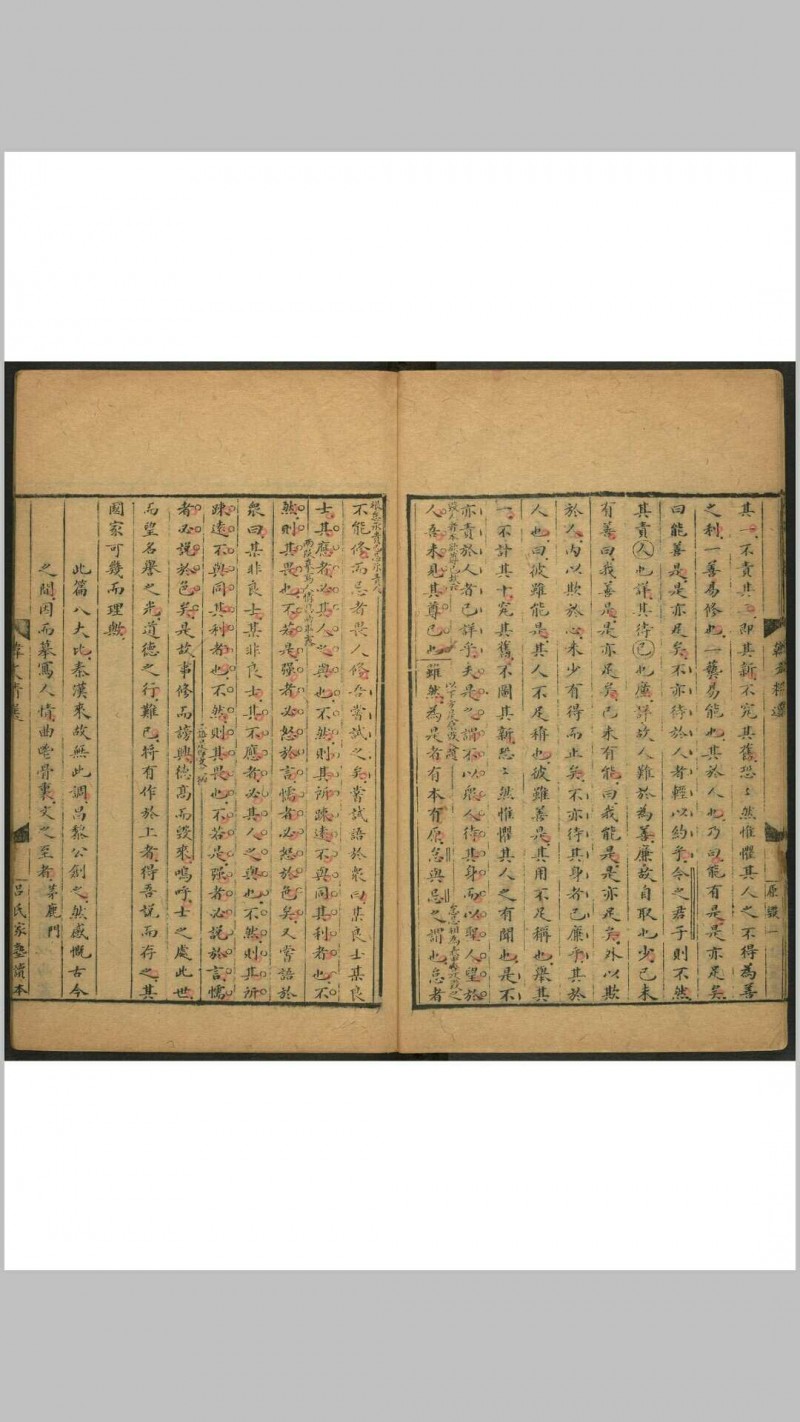 其一不責其二即其新不究其舊恐〻然惟懼其人之不得為善
之利一善易修也一藝易能也其於人也乃曰能有是是亦足矣
曰能善是是亦足矣不亦待於人者輕以約乎今之君子則不然
其責人也詳其待己也廉詳故人難於為善廉故自取也少己未
有善曰我善是是亦足矣己未有能曰我能是是亦足矣外以欺
於人內以欺於心未少有得而止矣不亦待其身者已廉乎其於
人也曰彼雖能是其人不足稱也彼雖善是其用不足稱也舉其
一不計其十究其舊不圖其新恐〻然惟懼其人之有聞也是不
亦責於人者已詳乎夫是之謂不以眾人待其身而以聖人望於
人吾未見其尊己也雖然為是者有本有原怠與忌之謂也怠者
原毀一
不能修而忌者畏人修吾嘗試之矣嘗試語於眾曰某良士某良
士其應者必其人之與也不然則其所疎遠不與同其利者也不
然則其畏也不若是強者必怒於言懦者必怒於色矣又嘗語於
眾曰某非良士某非良士其不應者必其人之與也不然則其所
疎遠不與同其利者也不然則其畏也不若是強者必說於言懦
者必說於色矣是故事修而謗興德高而毀來嗚呼士之處此世
而望名譽之光道德之行難已將有作於上者得吾說而存之其
國家可幾而理歟
此篇八大比秦漢來故無此調昌黎公創之然感慨古今
之間因而摹寫人情曲鬯骨裏文之至者茅鹿門
呂氏家塾讀本